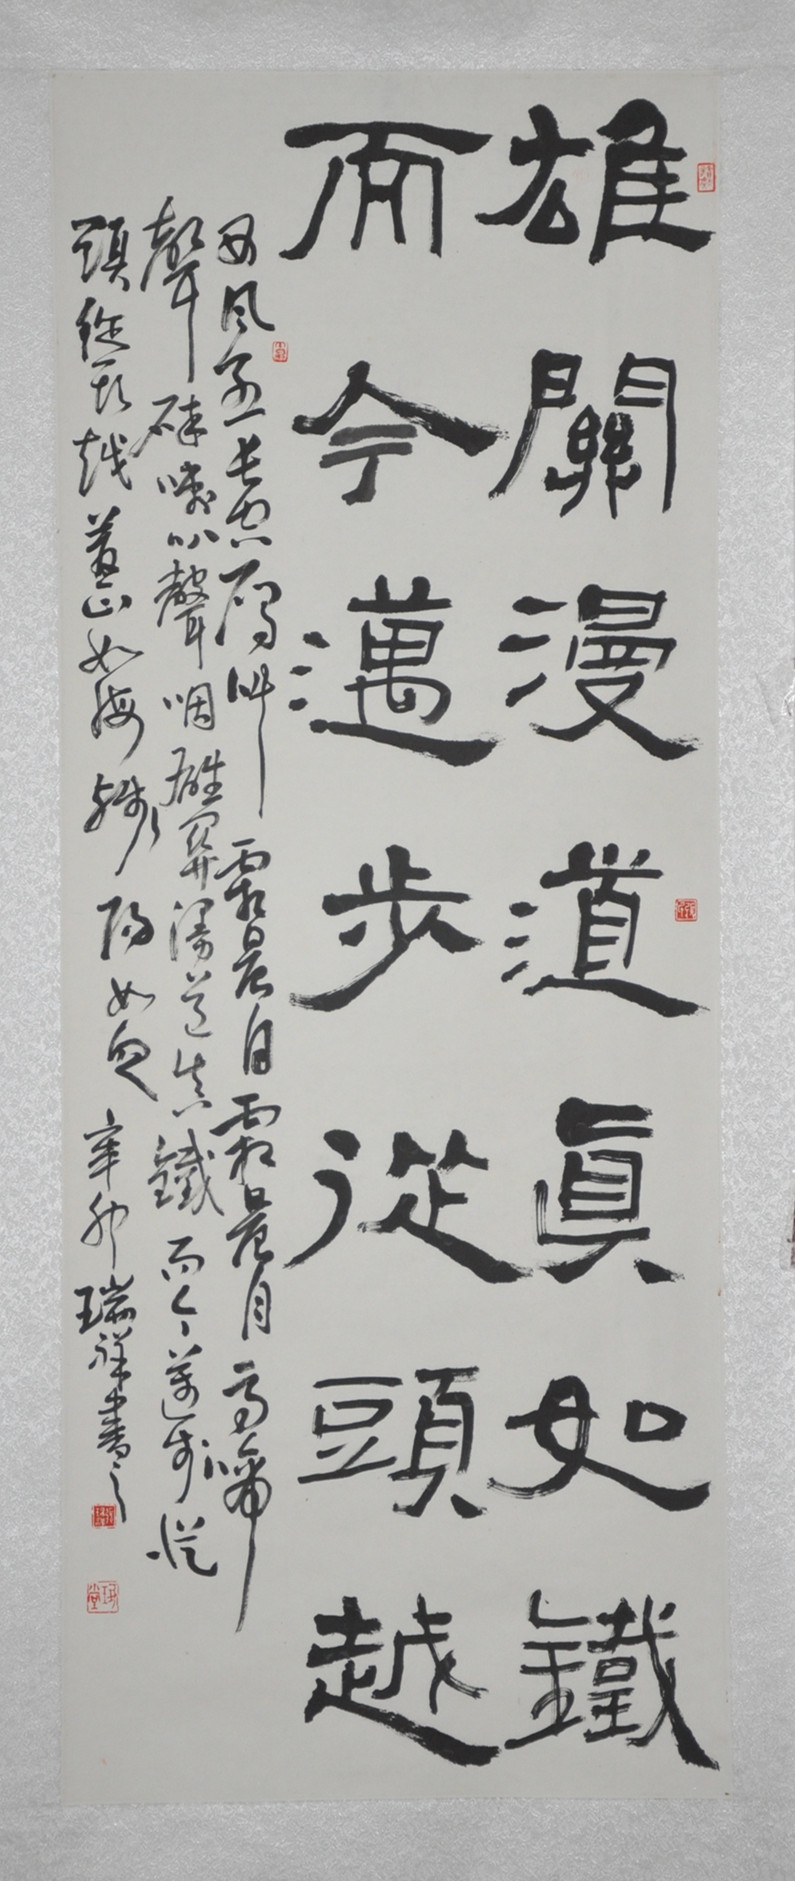 雄關漫道真如鐵
而今邁步從頭越
西風烈長空雁叫霜晨月霜晨月馬蹄
聲碎喇叭聲咽雄關漫道真鐵而今邁步從
頭從頭越蒼山如海殘陽如血辛卯瑞祥書之